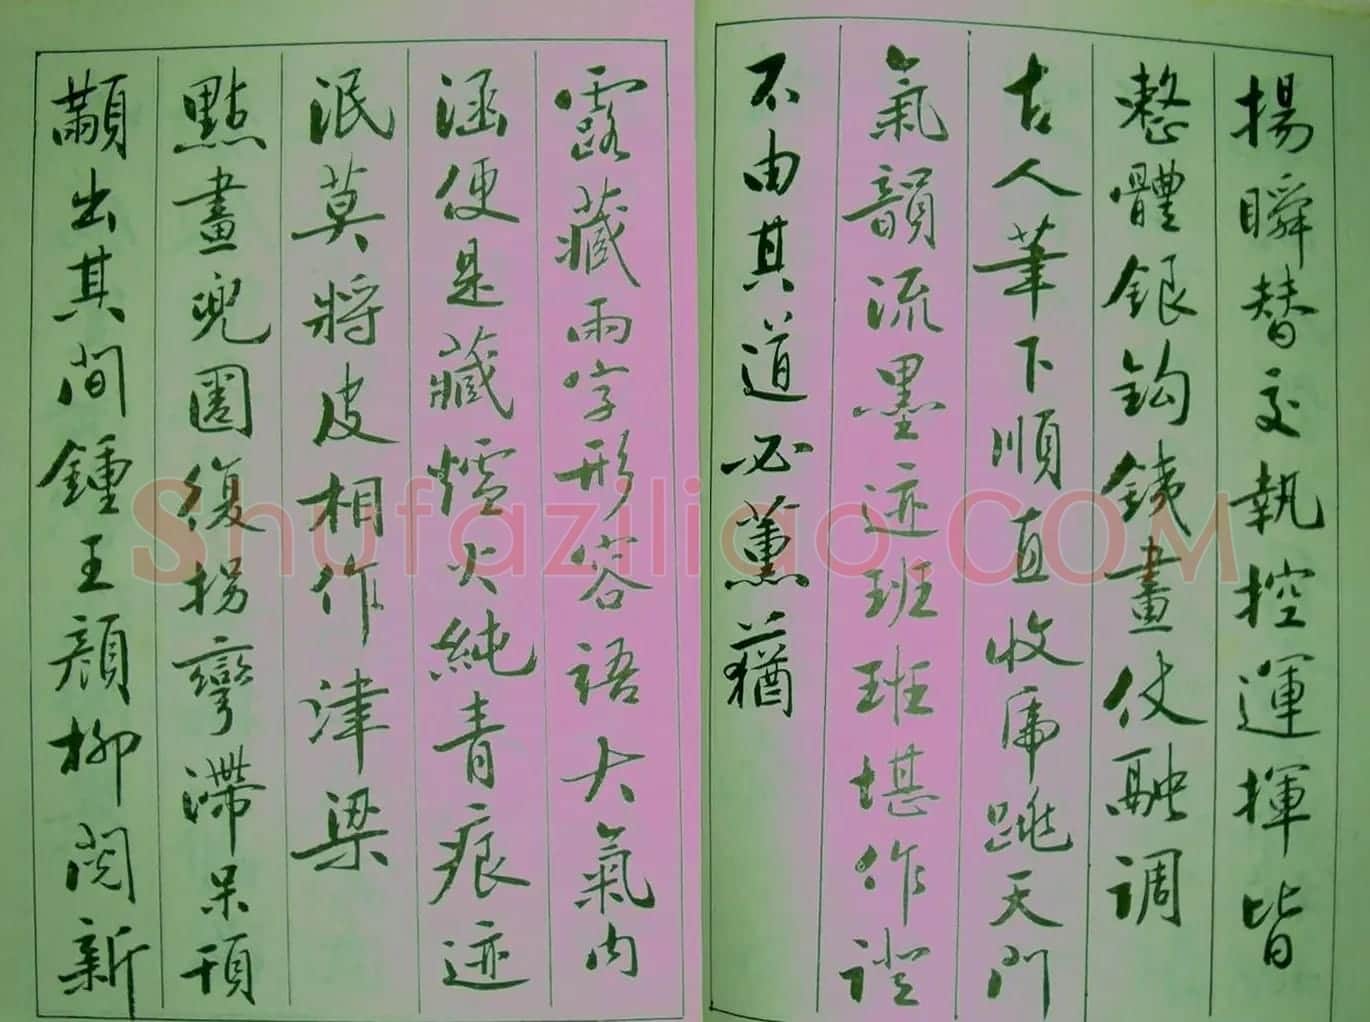 揚瞬替交執控運揮皆
整體銀鈎銕畫仗融调
古人筆下順直收虎跳天門
氣韻流墨迹班班堪作證
不由其道必薰蕕
露藏兩字形容語大氣内
涵便是藏爐火純青痕迹
泯莫將皮相作津梁
點畫兜圈復拐彎滯呆頇
顢出其間鍾王顏柳閱新
Shufaziliao.COM